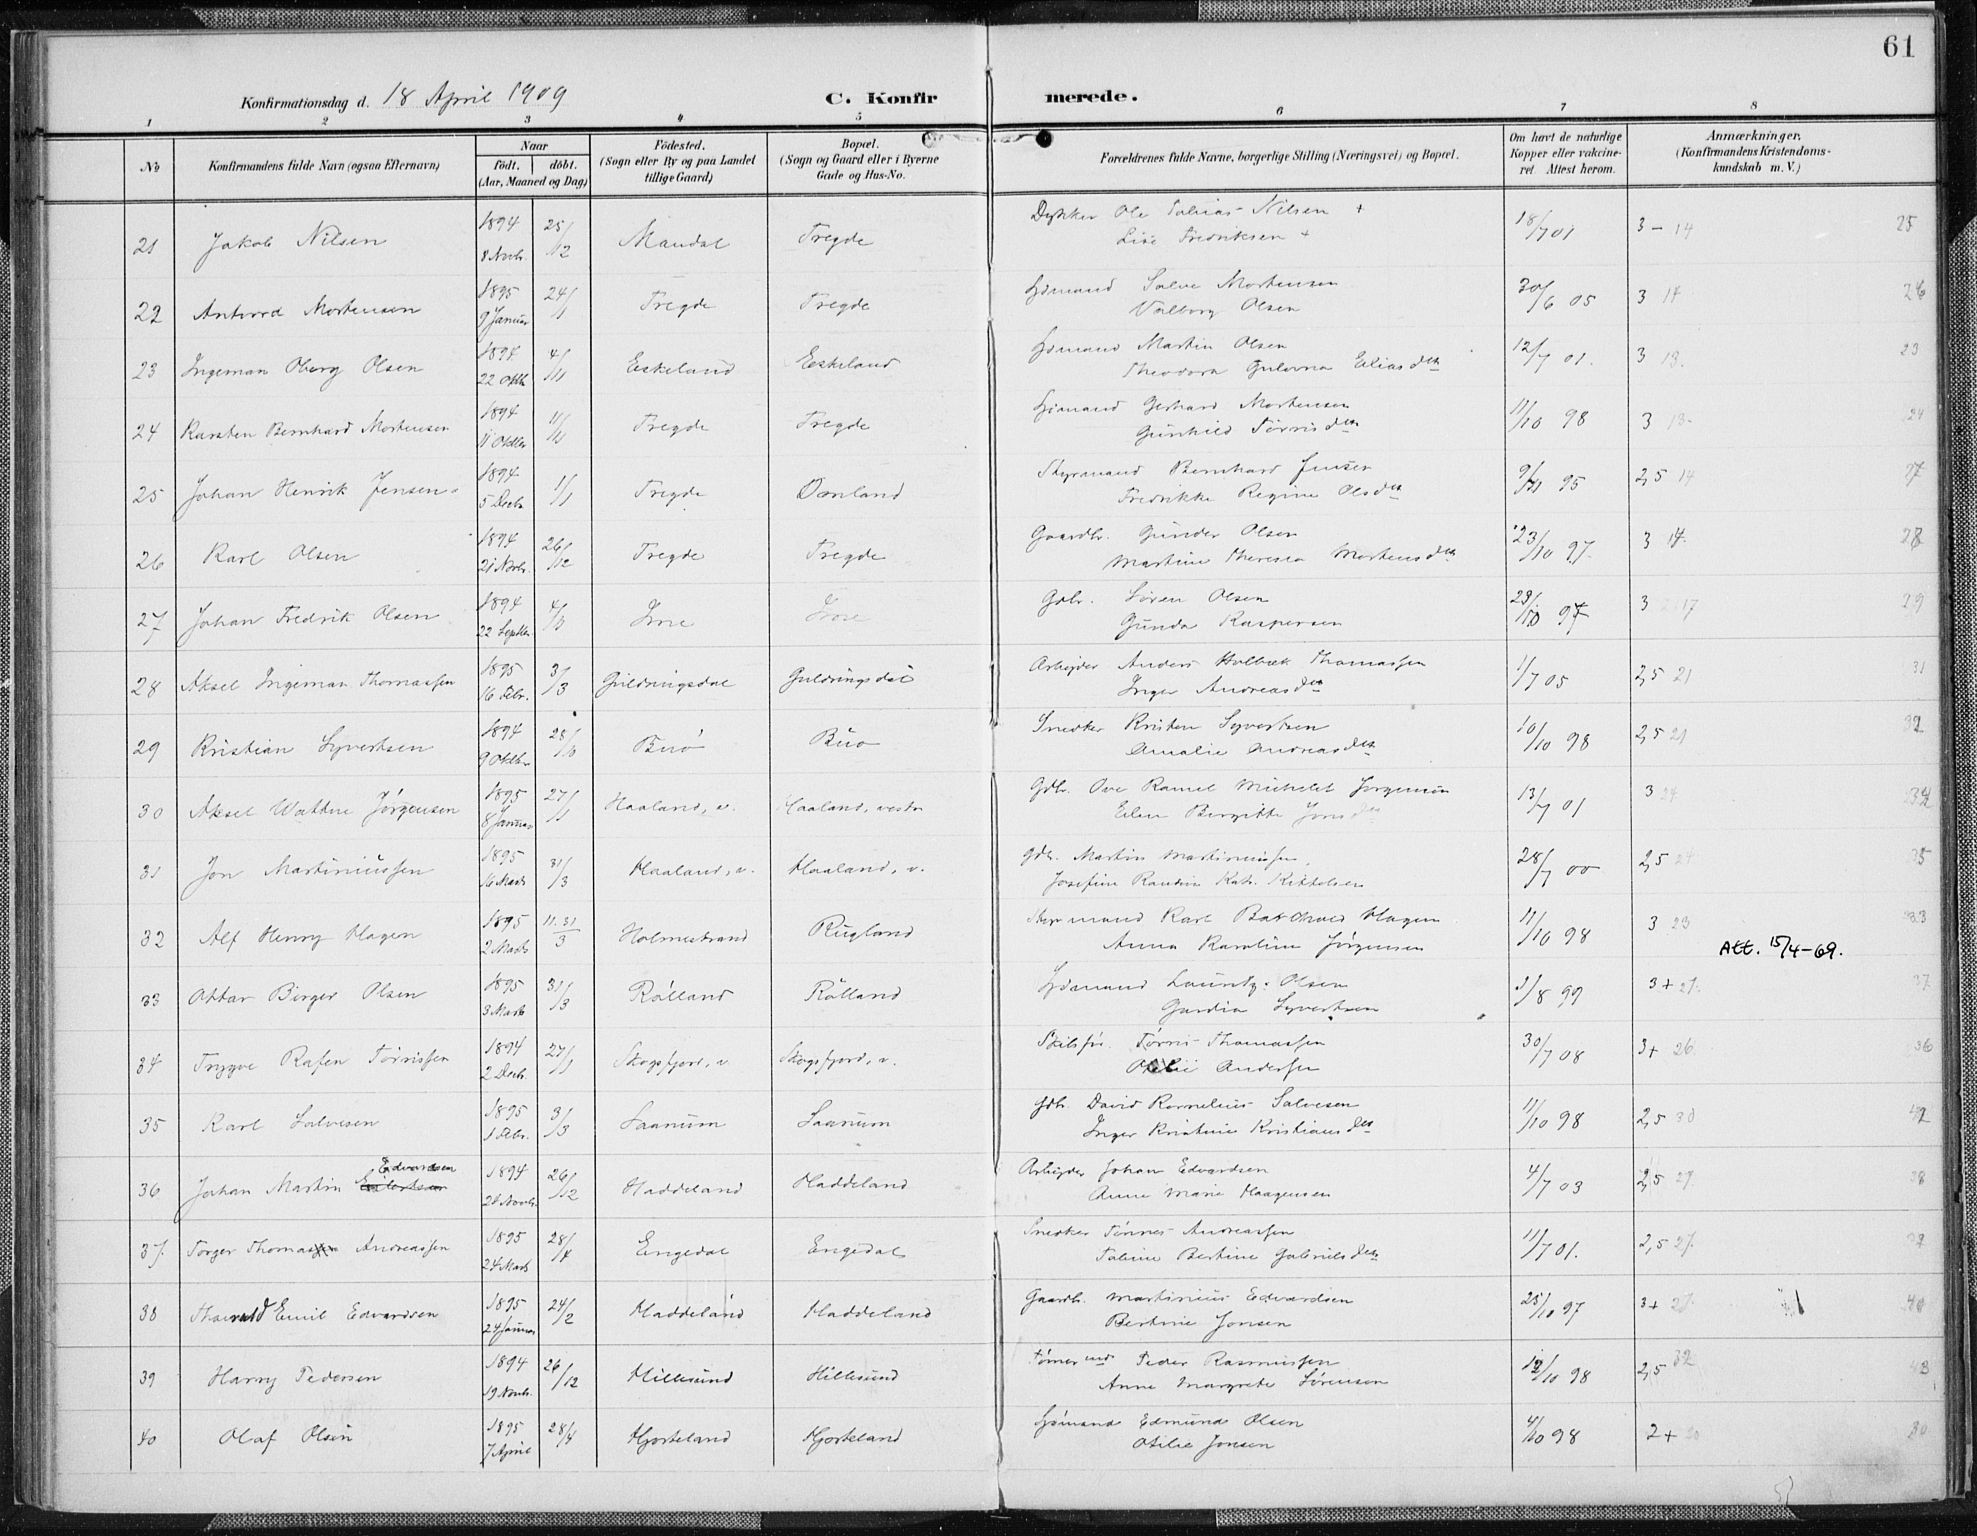 61
Konfirmationsdag d. 18 April 1909
C. Konfir merede.
1 2 3 4 5 6 7 8
No
Konfirmandens fulde Navn (ogsaa Efternavn)
Naar
født. døbt.
(Aar, Maaned og Dag)
Fødested.
(Sogn eller By og paa Landet
tillige Gaard)
Bopæl.
(Sogn og Gaard eller i Byerne
Gade og Hus-No.
Forældrenes fulde Navne, borgerlige Stilling (Næringsvei) og Bopæl.
Om havt de naturlige
Kopper eller vakcine-
ret. Attest herom.
Anmærkninger.
(Konfirmandens Kristendoms-
kundskab m. V.)
21 Jakob Nilsen 1894 8 Novbr. 25/12 Mandal Tregde Dykker Ole Tobias Nilsen + 18/7 01 3 - 14 25
Lise Fredriksen +
22 Antond Mortensen 1895 9 Januar 24/1 Tregde Tregde Sømand Salve Mortensen 30/6 05 3 14 26
Valborg Olsen
23 Ingeman Oberg Olsen 1894 22 Oktb. 4/11 Eskeland Eskeland Sømand Martin Olsen 12/7 01. 3 13. 23
Theodora Gulovna Eliasdtr
24 Karsten Bernhard Mortensen 1894 11 Oktbr 11/11 Tregde Tregde Sømand Gerhard Mortensen 11/10 98 3 13. 24
Gunhild Tørrisdtr
25 Johan Henrik Jensen 1894 5 Decbr. 1/1 Tregde Dønland Styrmand Bernhard Jensen 9/11 95 2,5 14 27
Fredrikke Regine Olsdtr
26 Karl Olsen 1894 21 Novbr. 26/12 Tregde Tregde Gaardbr. Gunder Olsen 23/10 97. 3 14. 28
Martine Theresea Mortensdtr
27 Johan Fredrik Olsen 1894 22 Septbr. Gdbr. Søren Olsen 23/10 97 3 17 29
Gunda Kaspersen
28 Aksel Ingeman Thomassen 1895 16 Febr. 3/3 Guldringsdal Guldringsdal Arbejder Anders Holbæk Thomassen 1/7 05 2,5 21 31
Inger Andreasdtr
29 Kristian Syvertsen 1894 9 Oktbr. 28/10 Buø Buø Snedker Kristen Syvertsen 10/10 98 2,5 21 32
Amalie Andreasdtr
30 Aksel Wattne Jørgensen 1895 8 Januar 27/1 Haaland, v. Haaland, vestr Gdbr. Ove Ramel Michelet Jørgensen 13/7 01 3 24. 34
Elen Birgitte Jonsdtr
31 Jon Martiniussen 1895 16 Marts 31/3 Haaland, v. Haaland, v. Gdb. Martin Martiniussen, 28/7 00 2,5 24 35
Josefine Randine Kath. Kittelsen
32 Alf Henry Hagen 1895 2 Marts 11. 31/3 Holmestrand Rugland Styrmand Karl Hagen 11/10 98 3 23 33
Anna Karoline Jørgensen Att. 15/4-69.
33 Ottar Birger Olsen 1895 3 Marts 31/3 Rölland Rölland Sømand Lauritz Olsen 3/8 99 3+ 27. 37
Gurdia Syvertsen
34 Trygve Rafen Tørrissen 1894 2 Decb. 27/1 Skogsfjord, v. Skogsfjord, v. Skibsfør. Tørris Thomassen 30/7 08 3+ 26. 36
Andersen
35 Karl Salvesen 1895 1 Febr. 3/3 Saanum Saanum Gdb. David Kornelius Salvesen 11/10 98 2,5 30 42
Inger Kristine Kristiansdtr
36 Johan Martin Edvardsen 1894 28 Novbr. 26/12 Haddeland Haddeland Arbejder Johan Edvardsen 4/7 03 2,5 27. 38
Anne Marie Haagensen
37. Torger Thomas Andreassen 1895 24 Marts 28/4 Engedal Engedal Snedker Tønnes Andreassen 11/7 01. 2,5 27. 39
Tobine Bertine Gabrielsdtr
38 Thorvald Emil Edvardsen 1895 24 Januar 24/2 Haddeland Haddeland Gaardb. Martinius Edvardsen 25/10 97 3+ 27. 40
Bertine Jonsen
39 Harry Pedersen 1894 19 Novbr. 26/12 Hillesund Hillesund Tømermd Peder Rasmussen 12/10 98 2,5 32 43
Anne Margrete Sørensen
40 Olaf Olsen 1895 7 April 28/4 Hjorteland Hjorteland Sømand Edmund Olsen 4/10 98 2+ 20 30
Otilie Jonsen